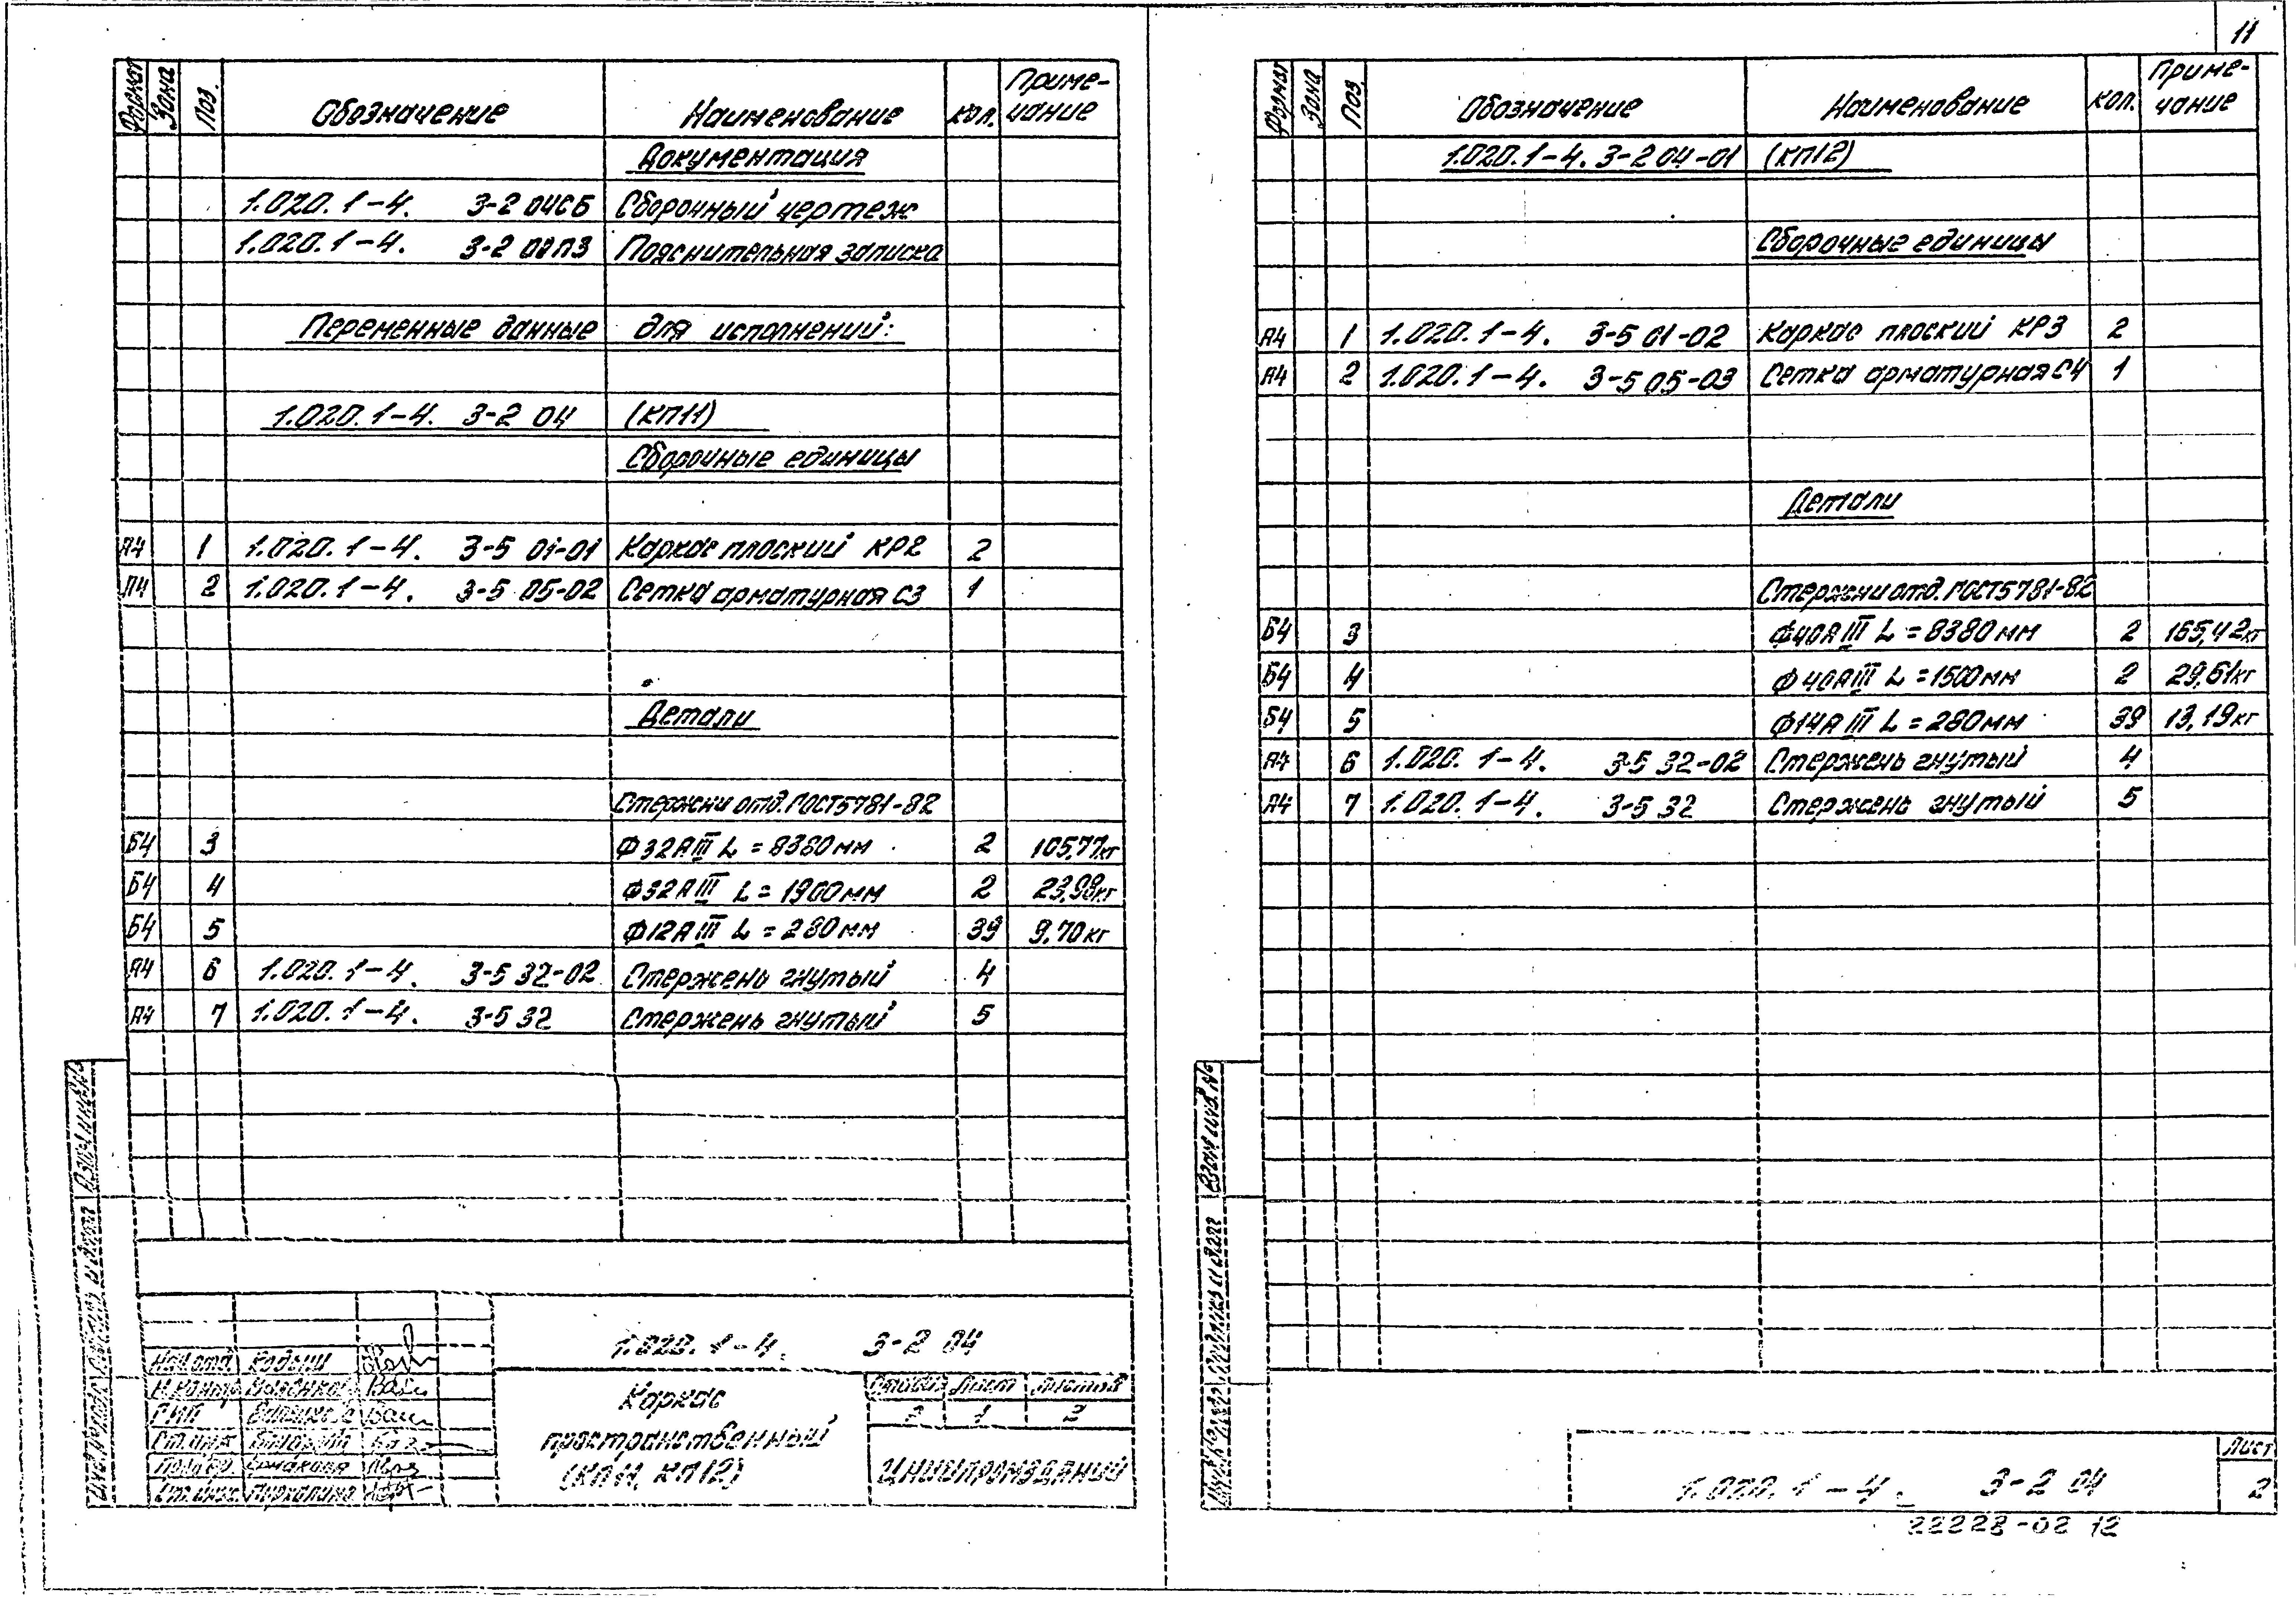 11
Формат Зона Поз. Обозначение Наименование Кол. Приме-
чание
Документация
1.020.1-4. 3-2 04СБ Сборочный чертеж
1.020.1-4. 3-2 00ПЗ Пояснительная записка
Переменные данные для исполнений:
1.020.1-4. 3-2 04 (КП11)
Сборочные единицы
А4 1 1.020.1-4. 3-5 01-01 Каркас плоский КР2 2
А4 2 1.020.1-4. 3-5 05-02 Сетка арматурная С3 1
Детали
Стержни отд. ГОСТ5781-82
Б4 3 Ф32АIII L=8380мм 2 105,77кг
Б4 4 Ф32АIII L=1900мм 2 23,98кг
Б4 5 Ф12АIII L=280мм 39 9,70кг
А4 6 1.020.1-4. 3-5 32-02 Стержень гнутый 4
А4 7 1.020.1-4. 3-5 32 Стержень гнутый 5
Взам инв №
Подпись и дата
Инв № подл
1.020.1-4. 3-2 04
Нач отд
Н.контр
ГИП
Ст.инж
Ст.инж.
Каркас
пространственный
(КП11, КП12)
Стадия Лист Листов
Р 1 2
ЦНИИПРОМЗДАНИЙ
Формат Зона Поз. Обозначение Наименование Кол. Приме-
чание
1.020.1-4. 3-2 04-01 (КП12)
Сборочные единицы
А4 1 1.020.1-4. 3-5 01-02 Каркас плоский КР3 2
А4 2 1.020.1-4. 3-5 05-03 Сетка арматурная С4 1
Детали
Стержни отд. ГОСТ5781-82
Б4 3 Ф40АIII L=8380мм 2 165,42кг
Б4 4 Ф40АIII L=1500мм 2 29,61кг
Б4 5 Ф14АIII L=280мм 39 13,19кг
А4 6 1.020.1-4. 3-5 32-02 Стержень гнутый 4
А4 7 1.020.1-4. 3-5 32 Стержень гнутый 5
Взам инв №
Подпись и дата
Инв № подл
1.020.1-4. 3-2 04
Лист
2
22228-02 12